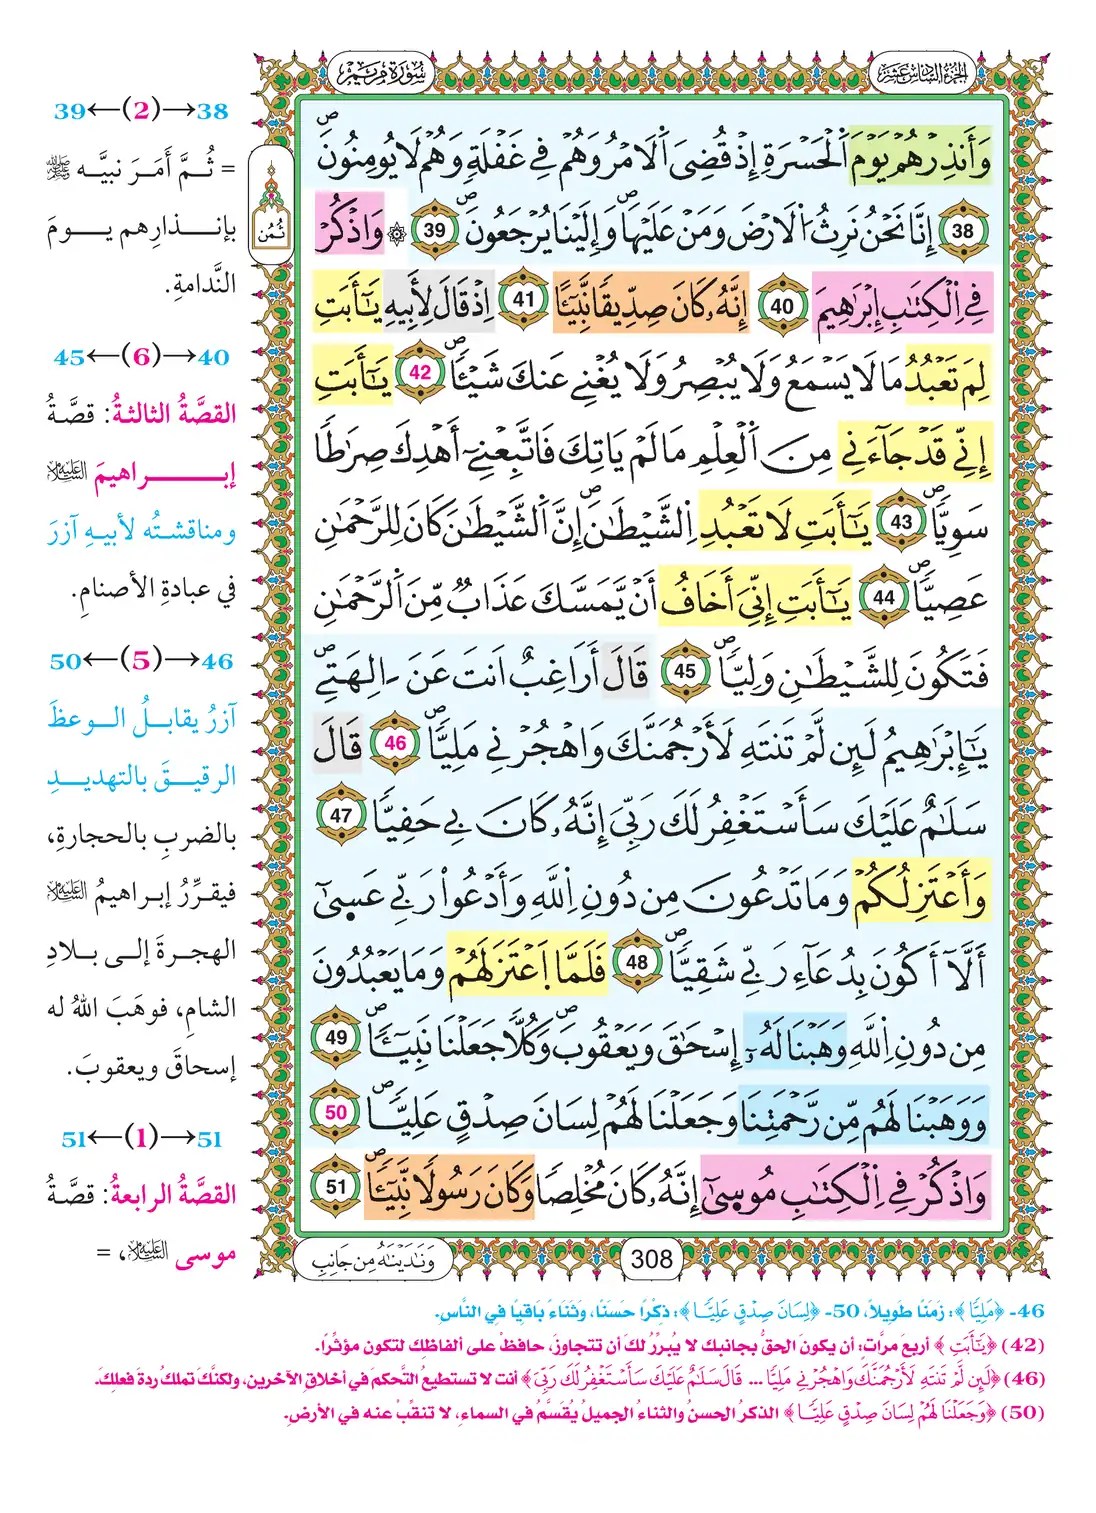 الجزء السادس عشر
سورة مريم
وَأَنذِرْهُمْ يَوْمَ اَ۬لْحَسْرَةِ إِذْ قُضِيَ اَ۬لَامْرُ وَهُمْ فِے غَفْلَةٖ وَهُمْ لَا يُومِنُونَۖ
38 إِنَّا نَحْنُ نَرِثُ اُ۬لَارْضَ وَمَنْ عَلَيْهَاۖ وَإِلَيْنَا يُرْجَعُونَۖ 39 ۞ وَاذْكُرْ
فِے اِ۬لْكِتَٰبِ إِبْرَٰهِيمَ 40 إِنَّهُۥ كَانَ صِدِّيقاٗ نَّبِيٓـٔاً 41 اِذْ قَالَ لِأَبِيهِ يَٰٓأَبَتِ
لِمَ تَعْبُدُ مَا لَا يَسْمَعُ وَلَا يُبْصِرُ وَلَا يُغْنِے عَنكَ شَيْـٔاٗۖ 42 يَٰٓأَبَتِ
إِنِّے قَدْ جَآءَنِے مِنَ اَ۬لْعِلْمِ مَا لَمْ يَاتِكَ فَاتَّبِعْنِےٓ أَهْدِكَ صِرَٰطاٗ
سَوِيّاٗۖ 43 يَٰٓأَبَتِ لَا تَعْبُدِ اِ۬لشَّيْطَٰنَۖ إِنَّ اَ۬لشَّيْطَٰنَ كَانَ لِلرَّحْمَٰنِ
عَصِيّاٗۖ 44 يَٰٓأَبَتِ إِنِّيَ أَخَافُ أَنْ يَّمَسَّكَ عَذَابٞ مِّنَ اَ۬لرَّحْمَٰنِ
فَتَكُونَ لِلشَّيْطَٰنِ وَلِيّاٗۖ 45 قَالَ أَرَاغِبٌ اَنتَ عَنَ اٰلِهَتِےۖ
يَٰٓإِبْرَٰهِيمُ لَئِن لَّمْ تَنتَهِ لَأَرْجُمَنَّكَ وَاهْجُرْنِے مَلِيّاٗۖ 46 قَالَ
سَلَٰمٌ عَلَيْكَ سَأَسْتَغْفِرُ لَكَ رَبِّيَ إِنَّهُۥ كَانَ بِے حَفِيّاٗ 47
وَأَعْتَزِلُكُمْ وَمَا تَدْعُونَ مِن دُونِ اِ۬للَّهِ وَأَدْعُواْ رَبِّے عَسٜىٰٓ
أَلَّآ أَكُونَ بِدُعَآءِ رَبِّے شَقِيّاٗۖ 48 فَلَمَّا اَ۪عْتَزَلَهُمْ وَمَا يَعْبُدُونَ
مِن دُونِ اِ۬للَّهِ وَهَبْنَا لَهُۥٓ إِسْحَٰقَ وَيَعْقُوبَۖ وَكُلّاٗ جَعَلْنَا نَبِيٓـٔاٗۖ 49
وَوَهَبْنَا لَهُم مِّن رَّحْمَتِنَا وَجَعَلْنَا لَهُمْ لِسَانَ صِدْقٍ عَلِيّاٗۖ 50
وَاذْكُرْ فِے اِ۬لْكِتَٰبِ مُوسٜىٰٓ إِنَّهُۥ كَانَ مُخْلِصاٗ وَكَانَ رَسُولاٗ نَّبِيٓـٔاٗۖ 51
ثُمُن
308
وَنَٰدَيْنَٰهُ مِن جَانِبِ
38→(2)←39
= ثُمَّ أَمَرَ نبيَّه ﷺ
بإنذارِهم يومَ
النَّدامةِ.
40→(6)←45
القصَّةُ الثالثةُ: قصَّةُ
إبراهيمَ عليه السلام
ومناقشتُه لأبيهِ آزرَ
في عبادةِ الأصنامِ.
46→(5)←50
آزرُ يقابلُ الوعظَ
الرقيقَ بالتهديدِ
بالضربِ بالحجارةِ،
فيقرِّرُ إبراهيمُ عليه السلام
الهجرةَ إلى بلادِ
الشامِ، فوهَبَ اللهُ له
إسحاقَ ويعقوبَ.
51→(1)←51
القصَّةُ الرابعةُ: قصَّةُ
موسى عليه السلام، =
46- ﴿مَلِيّاٗ﴾: زَمَنًا طَوِيلًا، 50- ﴿لِسَانَ صِدْقٍ عَلِيّاٗ﴾: ذِكْرًا حَسَنًا، وَثَنَاءً بَاقِيًا فِي النَّاسِ.
(42) ﴿يَٰٓأَبَتِ﴾ أربعَ مرَّات: أن يكونَ الحقُّ بجانبك لا يُبرِّرُ لكَ أن تتجاوزَ، حافظْ على ألفاظِك لتكون مؤثِّرًا.
(46) ﴿لَئِن لَّمْ تَنتَهِ لَأَرْجُمَنَّكَ وَاهْجُرْنِے مَلِيّاٗ ... قَالَ سَلَٰمٌ عَلَيْكَ سَأَسْتَغْفِرُ لَكَ رَبِّيَ﴾ أنت لا تستطيعُ التَّحكم في أخلاقِ الآخرين، ولكنَّكَ تملكُ ردةَ فعلِكَ.
(50) ﴿وَجَعَلْنَا لَهُمْ لِسَانَ صِدْقٍ عَلِيّاٗ﴾ الذكرُ الحسنُ والثناءُ الجميلُ يُقسَّمُ في السماءِ، لا تنقِّبْ عنه في الأرضِ.